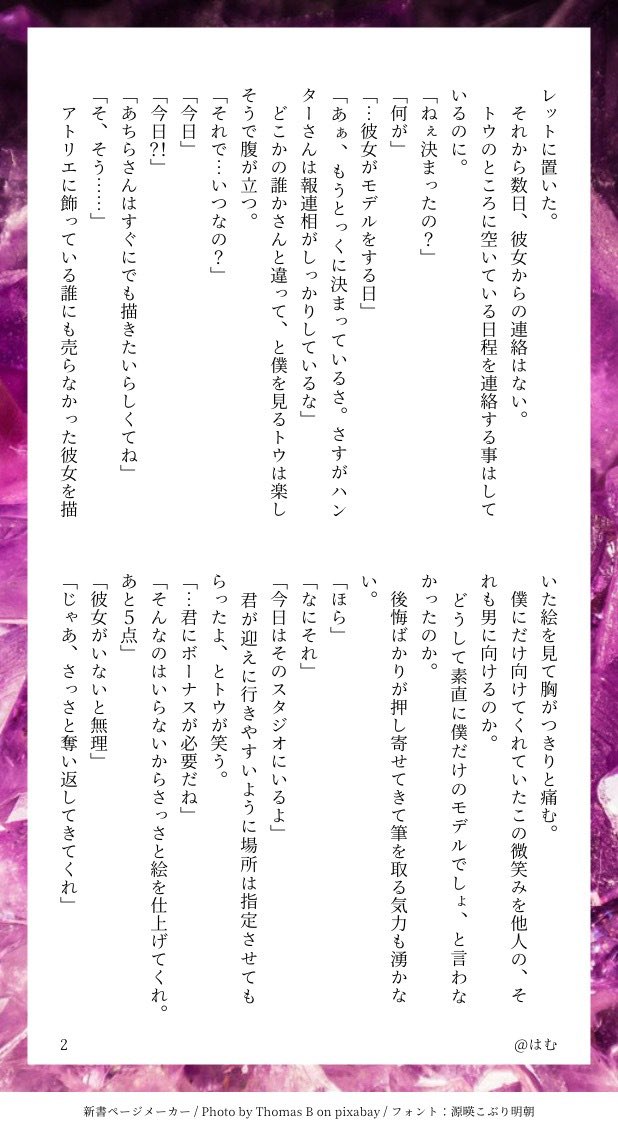 レットに置いた。
　それから数日、彼女からの連絡はない。
　トウのところに空いている日程を連絡する事はして
いるのに。
「ねぇ決まったの？」
「何が」
「…彼女がモデルをする日」
「あぁ、もうとっくに決まっているさ。さすがハン
ターさんは報連相がしっかりしているな」
　どこかの誰かさんと違って、と僕を見るトウは楽し
そうで腹が立つ。
「それで…いつなの？」
「今日」
「今日?!」
「あちらさんはすぐにでも描きたいらしくてね」
「そ、そう……」
　アトリエに飾っている誰にも売らなかった彼女を描
いた絵を見て胸がつきりと痛む。
　僕にだけ向けてくれていたこの微笑みを他人の、そ
れも男に向けるのか。
　どうして素直に僕だけのモデルでしょ、と言わな
かったのか。
　後悔ばかりが押し寄せてきて筆を取る気力も湧かな
い。
「ほら」
「なにそれ」
「今日はそのスタジオにいるよ」
　君が迎えに行きやすいように場所は指定させても
らったよ、とトウが笑う。
「…君にボーナスが必要だね」
「そんなのはいらないからさっさと絵を仕上げてくれ。
あと5点」
「彼女がいないと無理」
「じゃあ、さっさと奪い返してきてくれ」
@はむ
2
新書ページメーカー / Photo by Thomas B on pixabay / フォント：源暎こぶり明朝